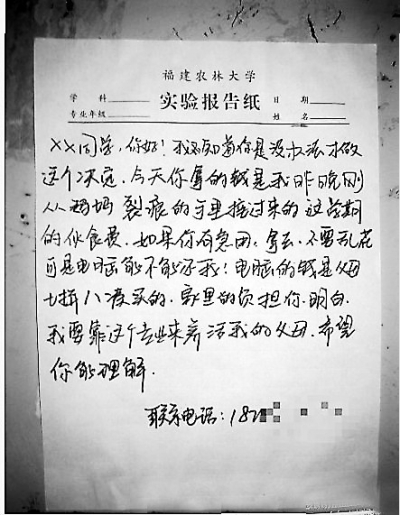 福建农林大学
学 科______ 实验报告纸 日 期______
专业年级______ 姓 名______
XX同学,你好!我不知道你是没办法才做
这个决定.今天你拿的钱是我昨晚刚
从妈妈裂痕的手里接过来的这学期
的伙食费.如果你有急用,拿去.不要乱花
可是电脑能不能还我!电脑的钱是父母
七拼八凑买的.家里的负担你明白.
我要靠这个专业来养活我的父母.希望
你能理解.
联系电话:182